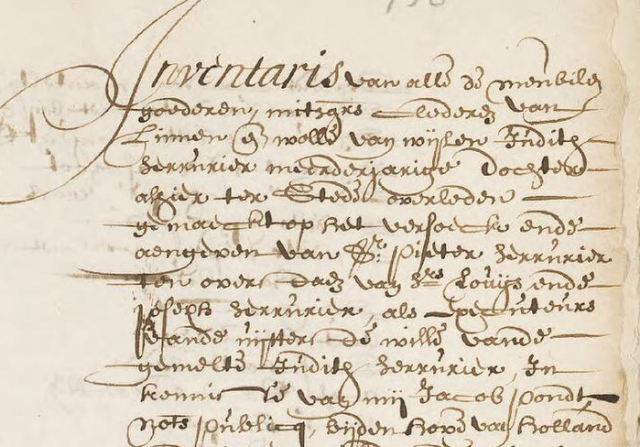 Inventaris van alle de meubile
goederen, mitsgrs clederen van
Linnen en wolle van wijlen Judith
Ferrurier meerderjarige dochter
alhier ter Stede overleden
gemaeckt op het versoeck ende
aengeven van Sr. Pieter Ferrurier
ten overs[taen] van Hrs Louijs ende
Joseph Ferrurier, als executeurs
vande uijtterste wille vande
gemelte Judith Ferrurier, In
kennisse van mij Jacob Pondt
Nots Publicq, bijden Hove van Holland